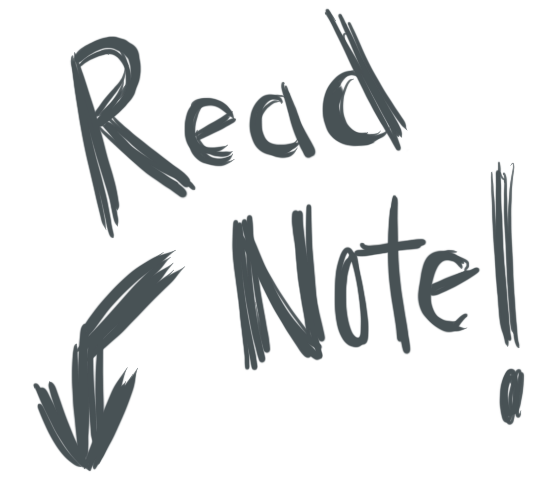 Read
Note!